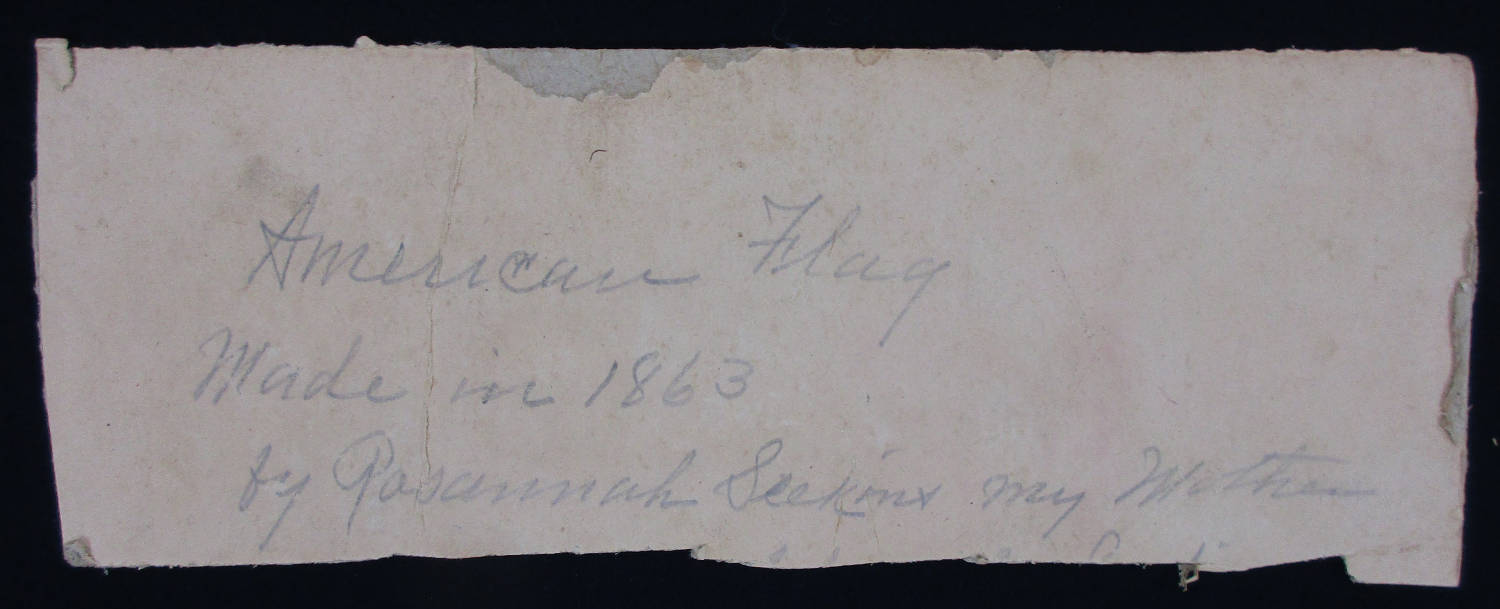 American Flag
Made in 1863
by Rosannah Seekins my Mother